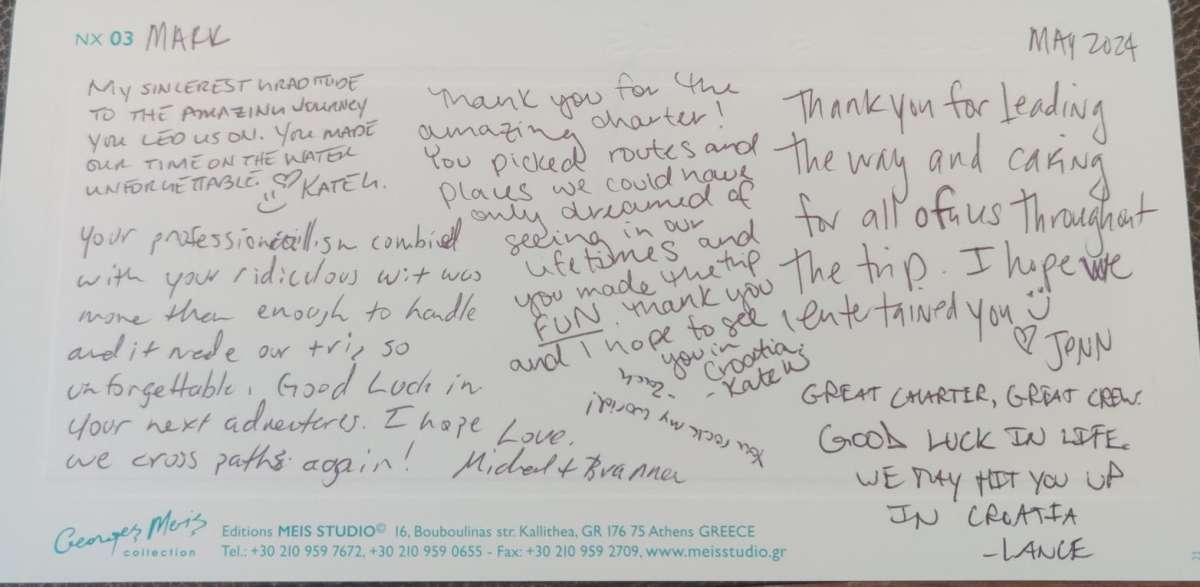 NX 03 MARK
MAY 2024
MY SINCEREST GRADITUDE
TO THE AMAZING JOURNEY
YOU LED US ON. YOU MADE
OUR TIME ON THE WATER
UNFORGETTABLE. ♡ KATE G.
Your professionalism combined
with your ridiculous wit was
more then enough to handle
and it made our trip so
unforgettable. Good Luck in
Your next adventures. I hope
we cross paths again!
Love,
Michael + Branner
Thank you for the
amazing charter!
You picked routes and
places we could have
only dreamed of
seeing in our
lifetimes and
you made the trip
FUN. Thank you
and I hope to see
you in
Croatia.
- Kate W
You rock my world!
- Zach
Thank you for leading
the way and caring
for all of us throughout
the trip. I hope we
entertained you
♡ JENN
GREAT CHARTER, GREAT CREW.
GOOD LUCK IN LIFE.
WE MAY HIT YOU UP
IN CROATIA
-LANCE
Georges Meis
collection
Editions MEIS STUDIO© 16, Bouboulinas str. Kallithea, GR 176 75 Athens GREECE
Tel.: +30 210 959 7672, +30 210 959 0655 - Fax: +30 210 959 2709, www.meisstudio.gr